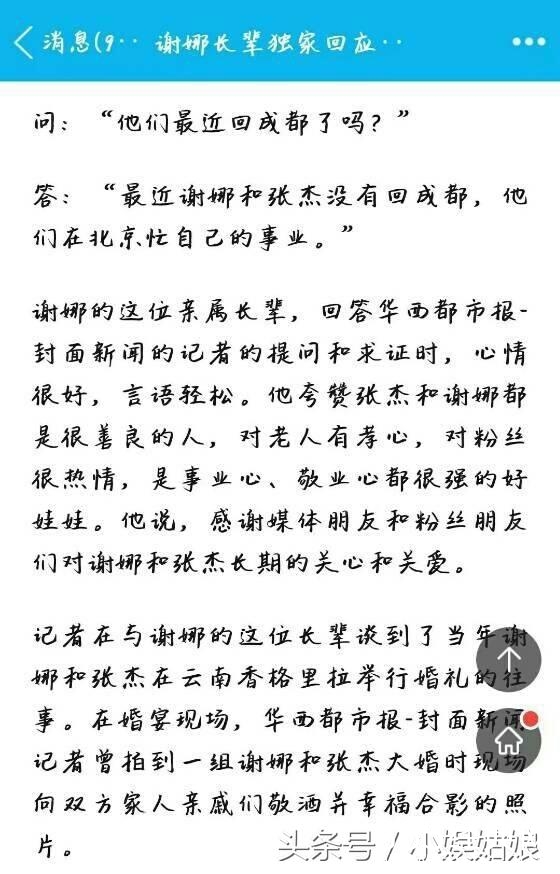 消息(9·· 谢娜长辈独家回应··
问：“他们最近回成都了吗？”
答：“最近谢娜和张杰没有回成都，他
们在北京忙自己的事业。”
谢娜的这位亲属长辈，回答华西都市报-
封面新闻的记者的提问和求证时，心情
很好，言语轻松。他夸赞张杰和谢娜都
是很善良的人，对老人有孝心，对粉丝
很热情，是事业心、敬业心都很强的好
娃娃。他说，感谢媒体朋友和粉丝朋友
们对谢娜和张杰长期的关心和关爱。
记者在与谢娜的这位长辈谈到了当年谢
娜和张杰在云南香格里拉举行婚礼的往
事。在婚宴现场，华西都市报-封面新闻
记者曾拍到一组谢娜和张杰大婚时现场
向双方家人亲戚们敬酒并幸福合影的照
片。
头条号／小娱姑娘